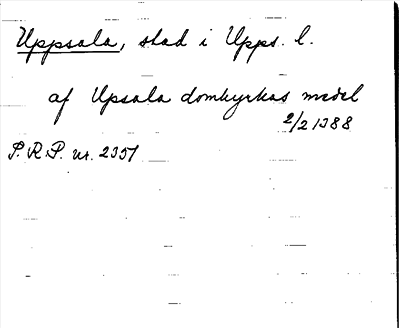 Uppsala, stad i Upps. l.
af Upsala domkyrkas medel
2/2 1388
S.R.P. nr. 2357